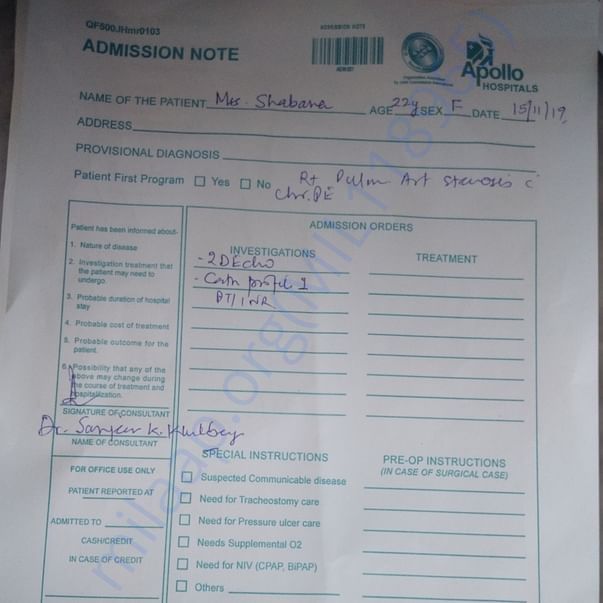 QF500.IHmr0103
ADMISSION NOTE
ADMISSION NOTE
Apollo
HOSPITALS
NAME OF THE PATIENT Mrs. Shabana AGE 22y SEX F DATE 15/11/19
ADDRESS
PROVISIONAL DIAGNOSIS
Patient First Program Yes No Rt Pulm Art stenosis c
Chr. PE
ADMISSION ORDERS
Patient has been informed about-
1. Nature of disease
2. Investigation treatment that
the patient may need to
undergo.
3. Probable duration of hospital
stay
4. Probable cost of treatment
5. Probable outcome for the
patient.
6. Possibility that any of the
above may change during
the course of treatment and
hospitalization.
SIGNATURE OF CONSULTANT
Dr. K.
NAME OF CONSULTANT
FOR OFFICE USE ONLY
PATIENT REPORTED AT
ADMITTED TO
CASH/CREDIT
IN CASE OF CREDIT
INVESTIGATIONS
- 2D Echo
- Cath profile 1
PT/INR
TREATMENT
SPECIAL INSTRUCTIONS
Suspected Communicable disease
Need for Tracheostomy care
Need for Pressure ulcer care
Needs Supplemental O2
Need for NIV (CPAP, BiPAP)
Others
PRE-OP INSTRUCTIONS
(IN CASE OF SURGICAL CASE)